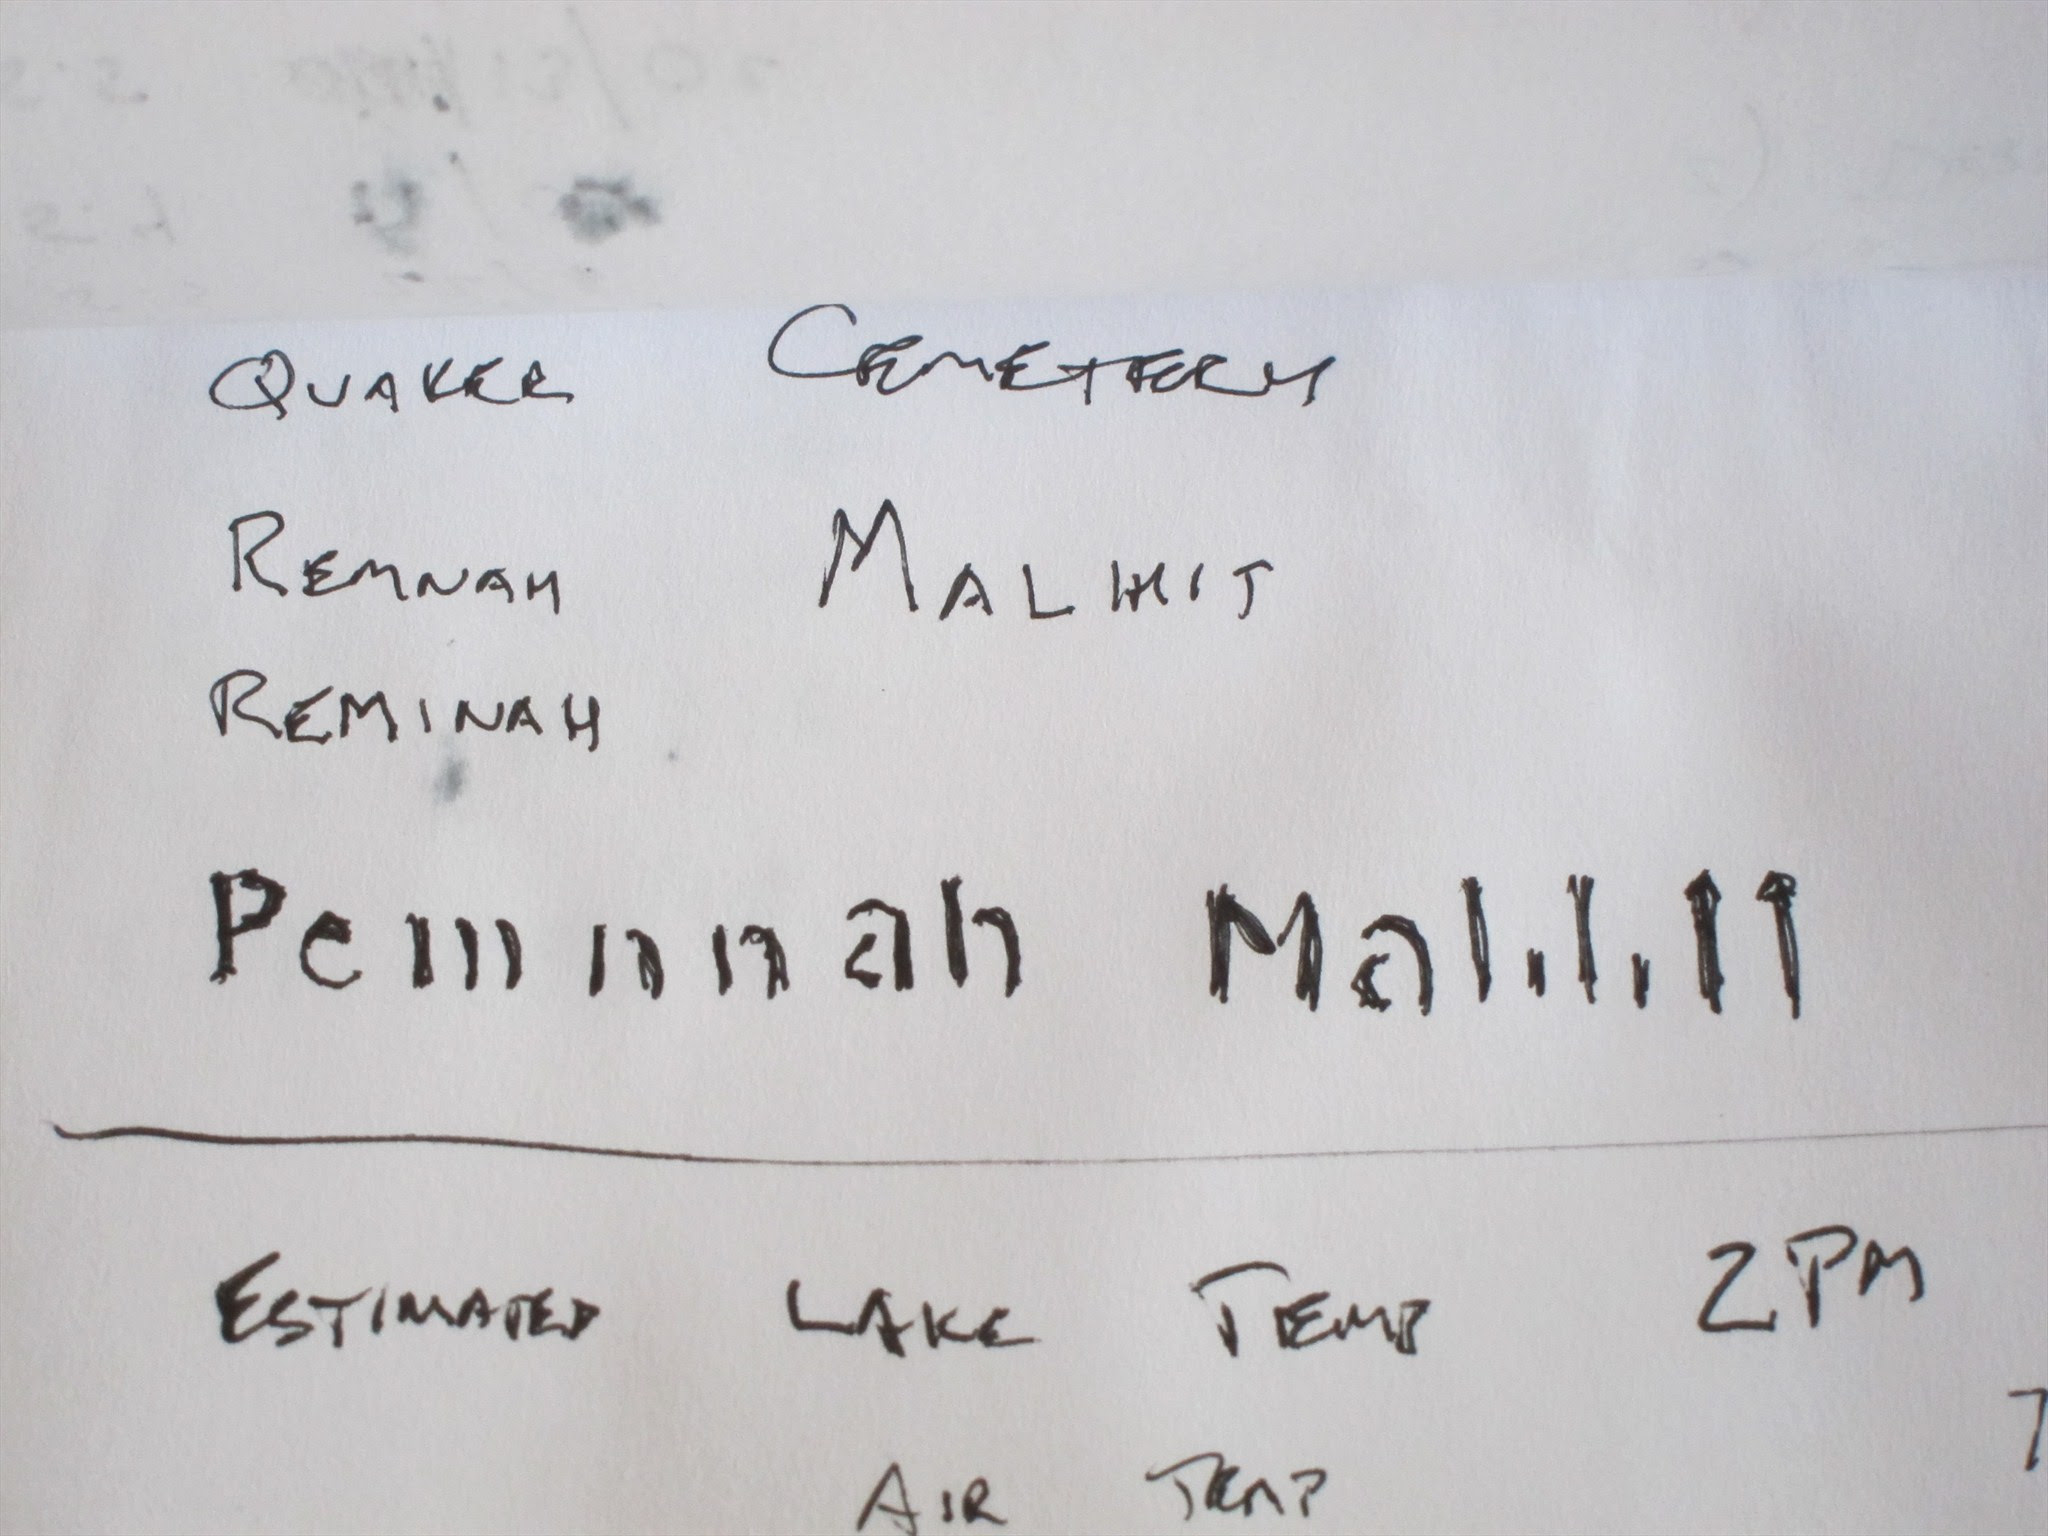 QUAKER CEMETERY
REMNAH MALHIT
REMINAH
Pemnnah Mal.l.ll
ESTIMATED LAKE TEMP 2 PM
7
AIR TEMP